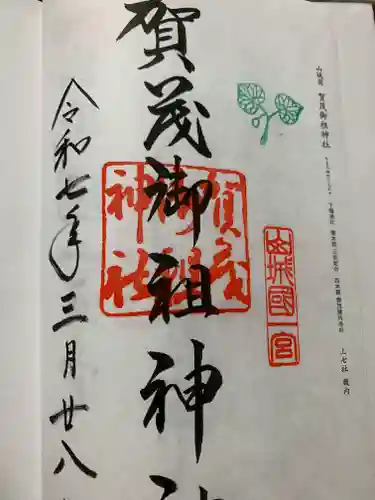 山城國 賀茂御祖神社
上七社 畿内
山城國一宮
賀茂御祖神社
賀茂御祖神社
令和七年三月廿八